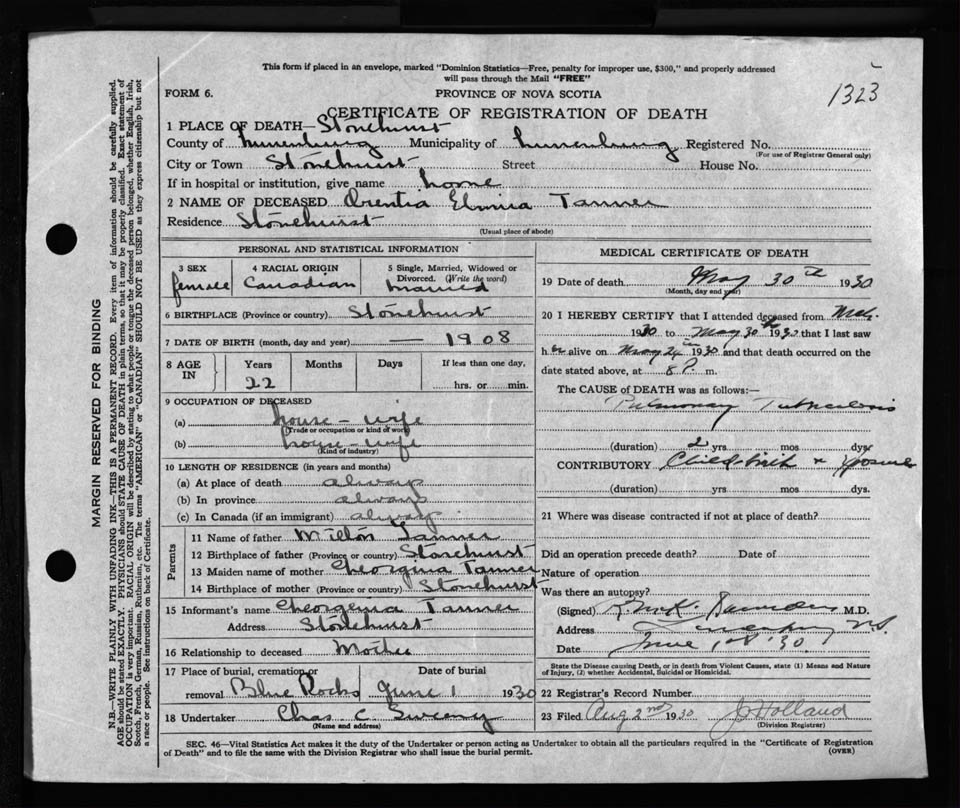 This form if placed in an envelope, marked "Dominion Statistics—Free, penalty for improper use, $300," and properly addressed
will pass through the Mail "FREE"
FORM 6.
PROVINCE OF NOVA SCOTIA
1323
CERTIFICATE OF REGISTRATION OF DEATH
1 PLACE OF DEATH— Stonehurst
County of Lunenburg Municipality of Lunenburg Registered No.
(For use of Registrar General only)
City or Town Stonehurst Street House No.
If in hospital or institution, give name home
2 NAME OF DECEASED Orentia Elmira Tanner
Residence Stonehurst
(Usual place of abode)
PERSONAL AND STATISTICAL INFORMATION
3 SEX 4 RACIAL ORIGIN 5 Single, Married, Widowed or
Divorced. (Write the word)
female Canadian married
6 BIRTHPLACE (Province or country) Stonehurst
7 DATE OF BIRTH (month, day and year) — 1908
8 AGE IN Years Months Days If less than one day,
22 hrs. or min.
9 OCCUPATION OF DECEASED
(a) house-wife
(Trade or occupation or kind of work)
(b) house-wife
(Kind of industry)
10 LENGTH OF RESIDENCE (in years and months)
(a) At place of death always
(b) In province always
(c) In Canada (if an immigrant) always
Parents
11 Name of father Milton Tanner
12 Birthplace of father (Province or country) Stonehurst
13 Maiden name of mother Georgina Tanner
14 Birthplace of mother (Province or country) Stonehurst
15 Informant's name Georgenia Tanner
Address Stonehurst
16 Relationship to deceased Mother
17 Place of burial, cremation or Date of burial
removal Blue Rocks June 1 1930
18 Undertaker Chas C Sweeny
(Name and address)
MEDICAL CERTIFICATE OF DEATH
19 Date of death May 30th 1930
(Month, day and year)
20 I HEREBY CERTIFY that I attended deceased from Mch.
1930 to May 30th 1930 that I last saw
her alive on May 24th 1930 and that death occurred on the
date stated above, at 8 P. m.
The CAUSE OF DEATH was as follows:—
Pulmonary Tuberculosis
(duration) 2 yrs mos dys
CONTRIBUTORY Child-birth + Exposure
(duration) yrs mos dys.
21 Where was disease contracted if not at place of death?
Did an operation precede death? Date of
Nature of operation
Was there an autopsy?
(Signed) Saunders M.D.
Address Lunenburg NS.
Date June 1st '30.
State the Disease causing Death, or in death from Violent Causes, state (1) Means and Nature
of Injury, (2) whether Accidental, Suicidal or Homicidal.
22 Registrar's Record Number
23 Filed Aug 2nd 1930 J Holland
(Division Registrar)
SEC. 46—Vital Statistics Act makes it the duty of the Undertaker or person acting as Undertaker to obtain all the particulars required in the "Certificate of Registration
of Death" and to file the same with the Division Registrar who shall issue the burial permit.
(OVER)
MARGIN RESERVED FOR BINDING
N.B.—WRITE PLAINLY WITH UNFADING INK—THIS IS A PERMANENT RECORD. Every item of information should be carefully supplied.
AGE should be stated EXACTLY. PHYSICIANS should STATE CAUSE OF DEATH in plain terms, so that it may be properly classified. Exact statement of
OCCUPATION is very important. RACIAL ORIGIN will be described by stating to what people or tongue the deceased person belonged, whether English, Irish,
Scotch, French, German, Russian, Ruthenian, etc. The terms "AMERICAN" or "CANADIAN" SHOULD NOT BE USED as they express citizenship but not
a race or people. See instructions on back of Certificate.